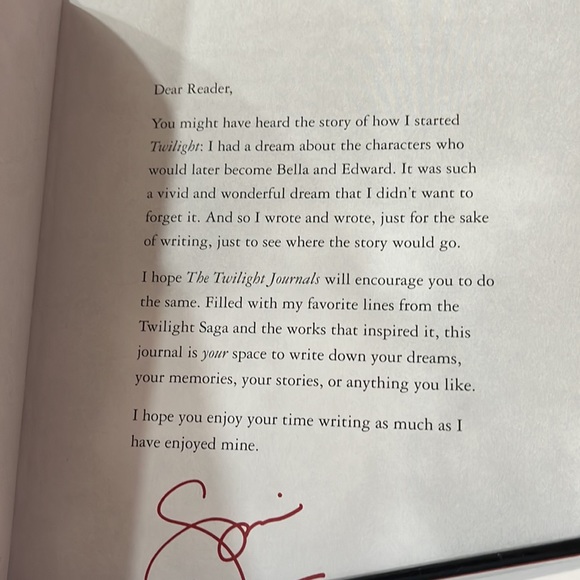 Dear Reader,
You might have heard the story of how I started
Twilight: I had a dream about the characters who
would later become Bella and Edward. It was such
a vivid and wonderful dream that I didn't want to
forget it. And so I wrote and wrote, just for the sake
of writing, just to see where the story would go.
I hope The Twilight Journals will encourage you to do
the same. Filled with my favorite lines from the
Twilight Saga and the works that inspired it, this
journal is your space to write down your dreams,
your memories, your stories, or anything you like.
I hope you enjoy your time writing as much as I
have enjoyed mine.